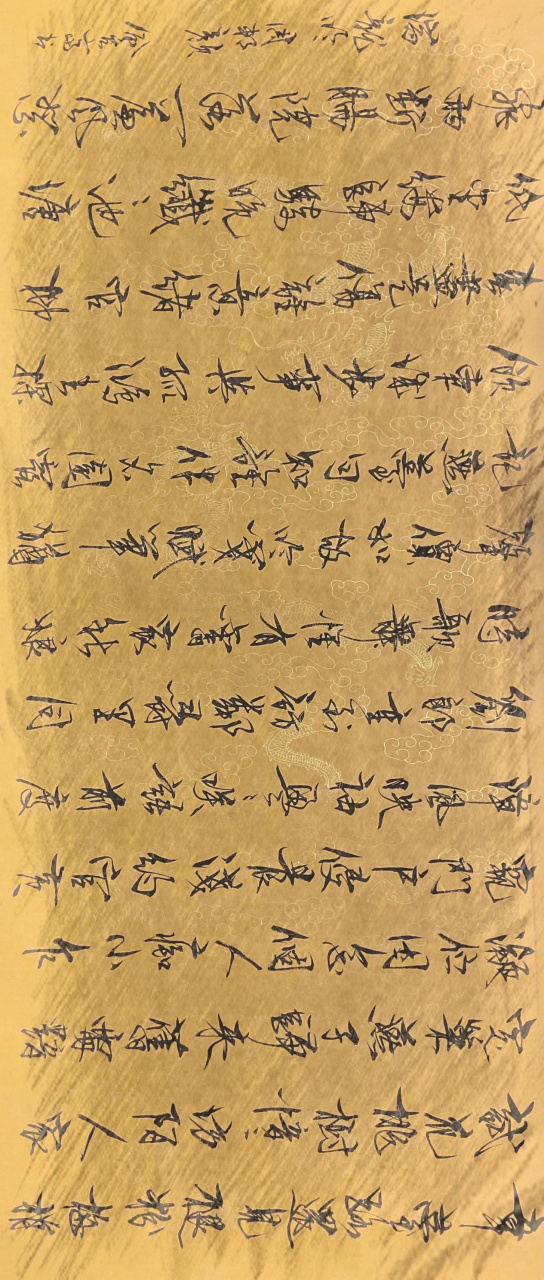 章臺路還見褪粉梅梢
試花桃樹愔〻坊陌人家
定巢燕子歸來舊處黯
凝佇因念個人癡小乍
窺門戶侵晨淺約宮黃
障風映袖盈〻笑語前度
劉郎重到訪鄰尋里同
時歌舞惟有舊家秋娘
聲價如故吟箋賦筆猶
記燕臺句知誰伴名園露
飲東城閒步事與孤鴻去探
春盡是傷離意緒官柳
低金縷歸騎晚纖〻池塘
飛雨斷腸院落一簾風絮
瑞龍吟 周邦彥